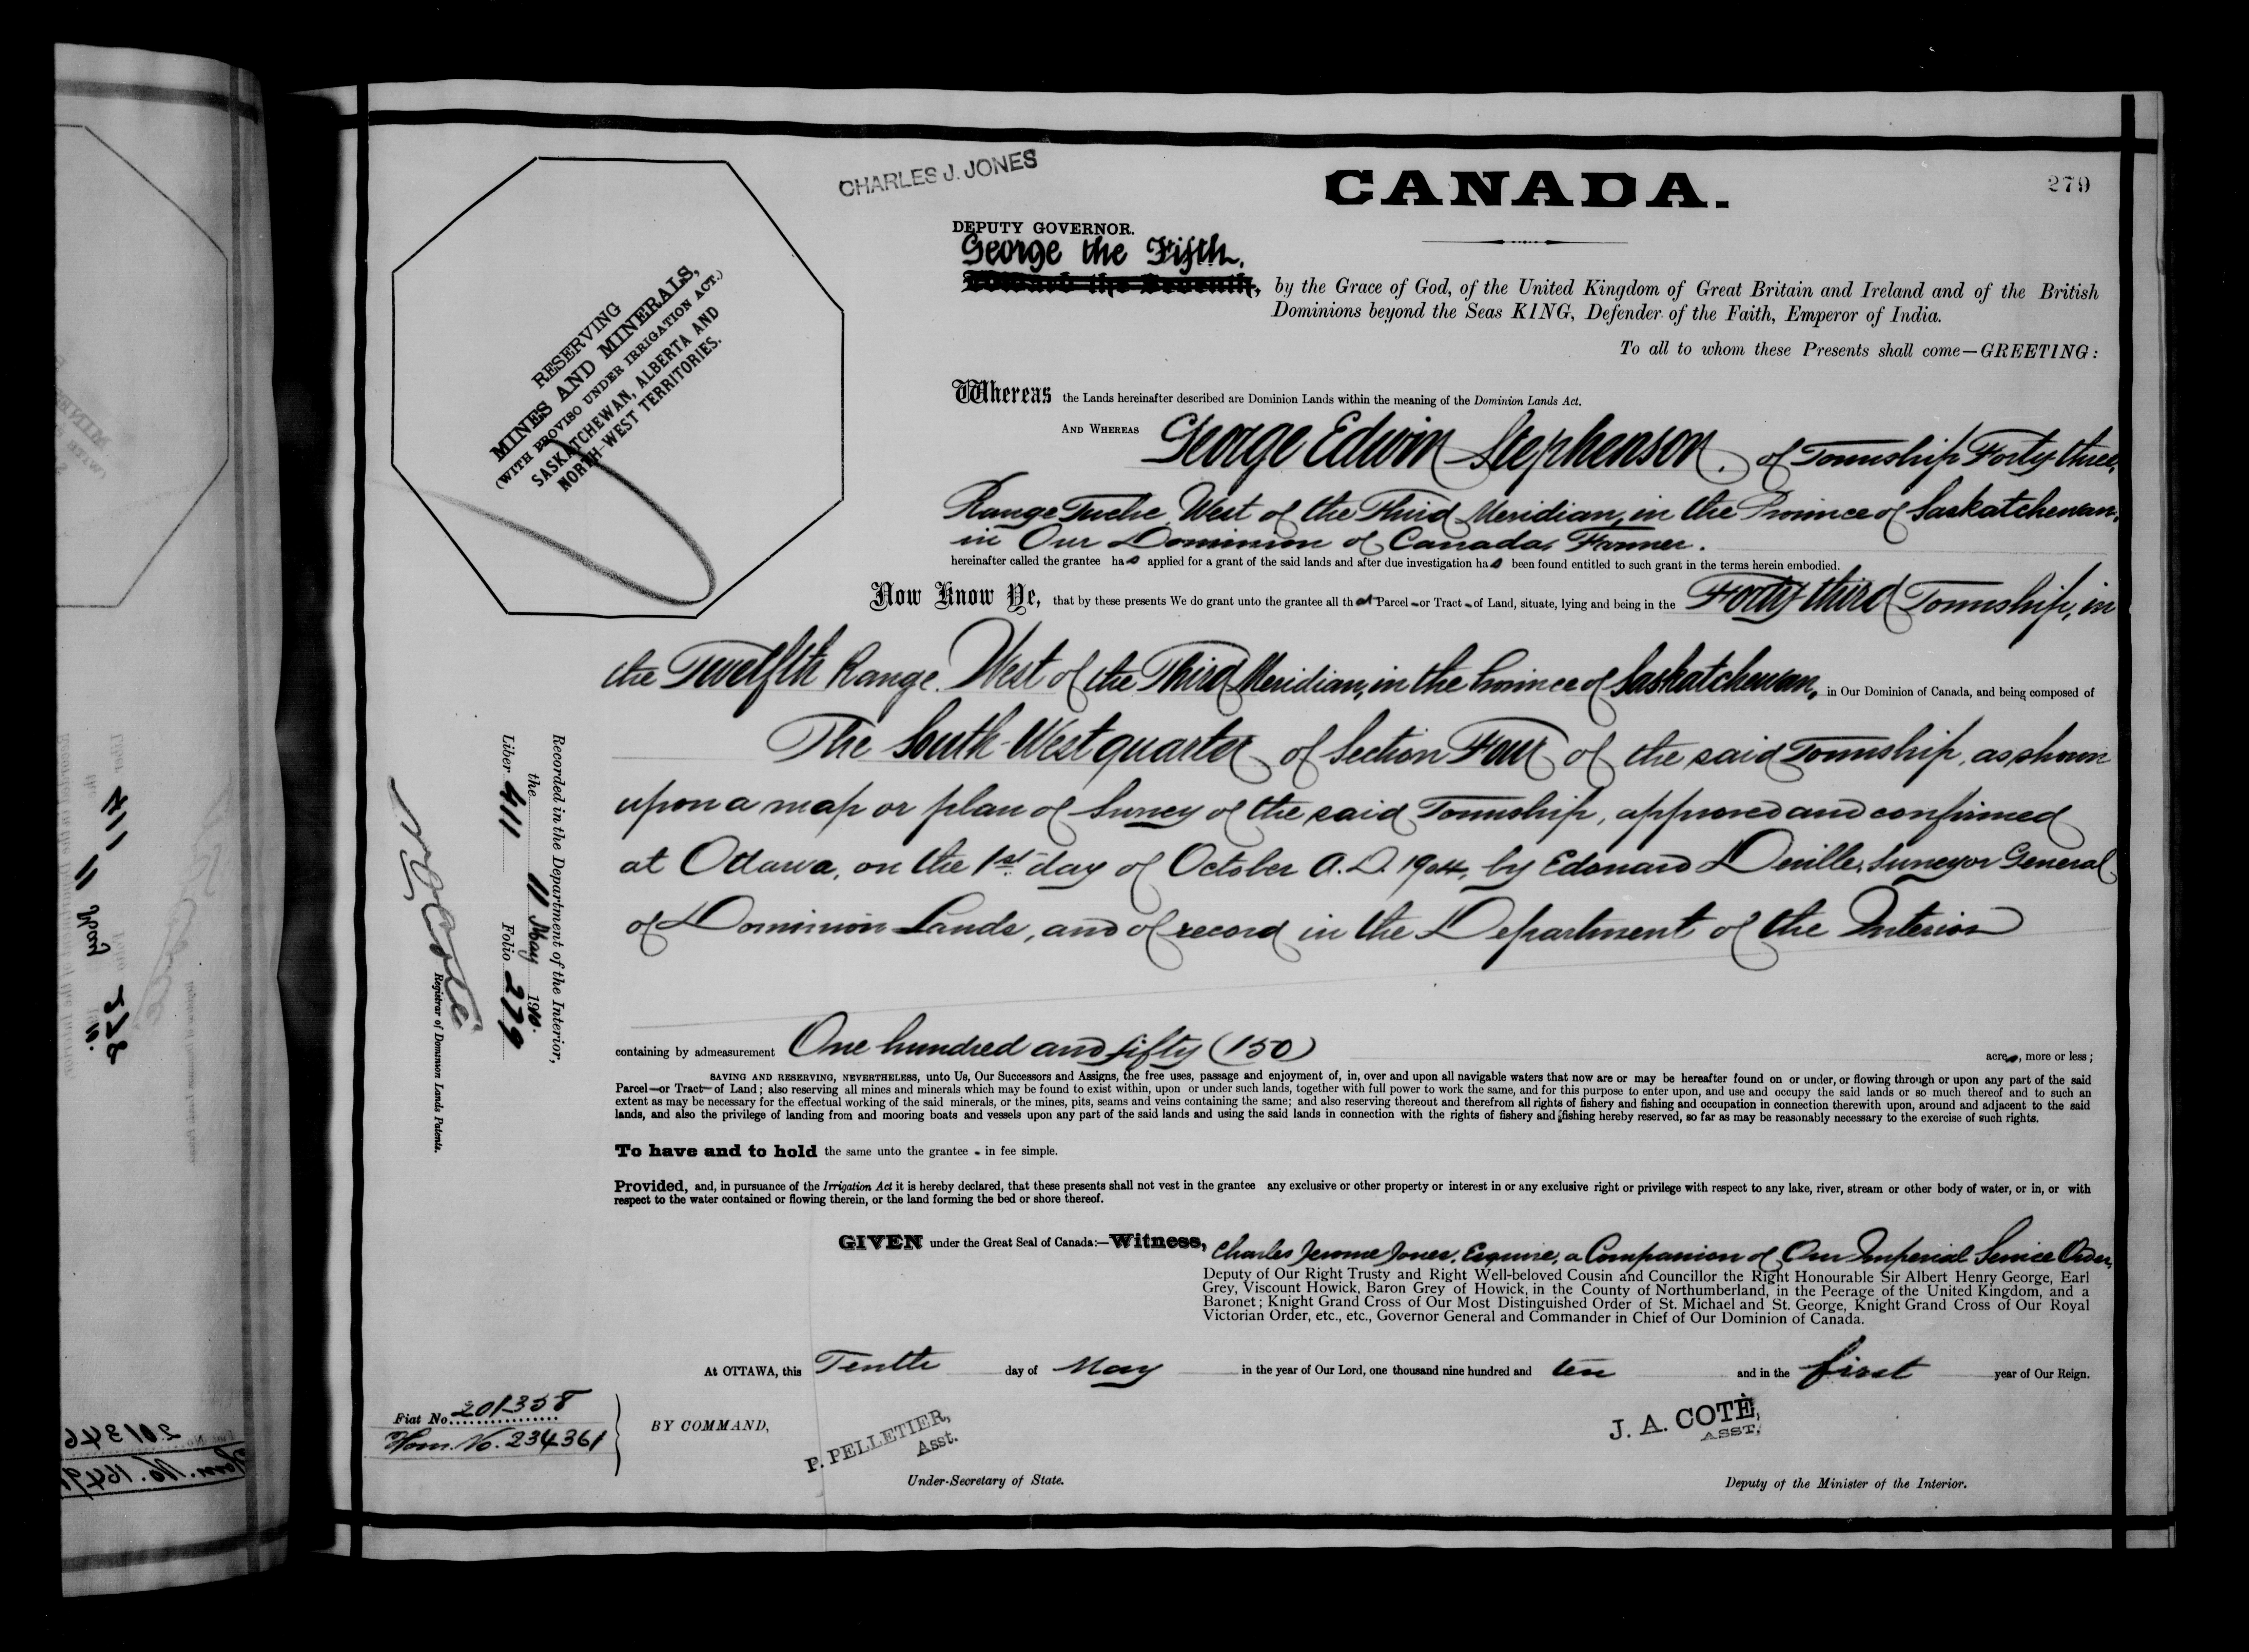 CHARLES J. JONES
CANADA.
279
DEPUTY GOVERNOR.
George the Fifth,
Edward the Seventh, by the Grace of God, of the United Kingdom of Great Britain and Ireland and of the British
Dominions beyond the Seas KING, Defender of the Faith, Emperor of India.
To all to whom these Presents shall come—GREETING:
RESERVING
MINES AND MINERALS,
(WITH PROVISO UNDER IRRIGATION ACT.)
SASKATCHEWAN, ALBERTA AND
NORTH-WEST TERRITORIES.
Whereas the Lands hereinafter described are Dominion Lands within the meaning of the Dominion Lands Act.
AND WHEREAS George Edwin Stephenson, of Township Forty-three,
Range Twelve, West of the Third Meridian, in the Province of Saskatchewan,
in Our Dominion of Canada, Farmer.
hereinafter called the grantee has applied for a grant of the said lands and after due investigation has been found entitled to such grant in the terms herein embodied.
Now Know Ye, that by these presents We do grant unto the grantee all that Parcel or Tract of Land, situate, lying and being in the Forty-third Township, in
the Twelfth Range, West of the Third Meridian, in the Province of Saskatchewan, in Our Dominion of Canada, and being composed of
The South-West quarter of Section Four of the said Township, as shown
upon a map or plan of Survey of the said Township, approved and confirmed
at Ottawa, on the 1st day of October A.D. 1904, by Edouard Deville, Surveyor General
of Dominion Lands, and of record in the Department of the Interior
containing by admeasurement One hundred and fifty (150) acres, more or less;
SAVING AND RESERVING, NEVERTHELESS, unto Us, Our Successors and Assigns, the free uses, passage and enjoyment of, in, over and upon all navigable waters that now are or may be hereafter found on or under, or flowing through or upon any part of the said
Parcel—or Tract—of Land; also reserving all mines and minerals which may be found to exist within, upon or under such lands, together with full power to work the same, and for this purpose to enter upon, and use and occupy the said lands or so much thereof and to such an
extent as may be necessary for the effectual working of the said minerals, or the mines, pits, seams and veins containing the same; and also reserving thereout and therefrom all rights of fishery and fishing and occupation in connection therewith upon, around and adjacent to the said
lands, and also the privilege of landing from and mooring boats and vessels upon any part of the said lands and using the said lands in connection with the rights of fishery and fishing hereby reserved, so far as may be reasonably necessary to the exercise of such rights.
To have and to hold the same unto the grantee - in fee simple.
Provided, and, in pursuance of the Irrigation Act it is hereby declared, that these presents shall not vest in the grantee any exclusive or other property or interest in or any exclusive right or privilege with respect to any lake, river, stream or other body of water, or in, or with
respect to the water contained or flowing therein, or the land forming the bed or shore thereof.
GIVEN under the Great Seal of Canada:—Witness, Charles Jerome Jones, Esquire, a Companion of Our Imperial Service Order,
Deputy of Our Right Trusty and Right Well-beloved Cousin and Councillor the Right Honourable Sir Albert Henry George, Earl
Grey, Viscount Howick, Baron Grey of Howick, in the County of Northumberland, in the Peerage of the United Kingdom, and a
Baronet; Knight Grand Cross of Our Most Distinguished Order of St. Michael and St. George, Knight Grand Cross of Our Royal
Victorian Order, etc., etc., Governor General and Commander in Chief of Our Dominion of Canada.
At OTTAWA, this Tenth day of May in the year of Our Lord, one thousand nine hundred and ten and in the first year of Our Reign.
BY COMMAND,
P. PELLETIER,
Asst.
Under-Secretary of State.
J. A. COTÉ,
ASST.
Deputy of the Minister of the Interior.
Fiat No. 201358
Hom. No. 234361
Recorded in the Department of the Interior,
the 11 May 1910.
Liber 411 Folio 279
Registrar of Dominion Lands Patents.